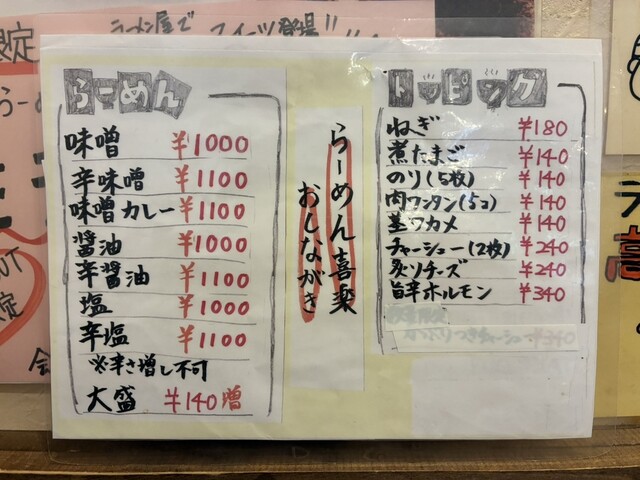 ラーメン屋でスイーツ登場!!
らーめん
味噌 ¥1000
辛味噌 ¥1100
味噌カレー ¥1100
醬油 ¥1000
辛醬油 ¥1100
塩 ¥1000
辛塩 ¥1100
※辛さ増し不可
大盛 ¥140増
らーめん喜楽
おしながき
トッピング
ねぎ ¥180
煮たまご ¥140
のり(5枚) ¥140
肉ワンタン(5コ) ¥140
茎ワカメ ¥140
チャーシュー(2枚) ¥240
炙りチーズ ¥240
旨辛ホルモン ¥340